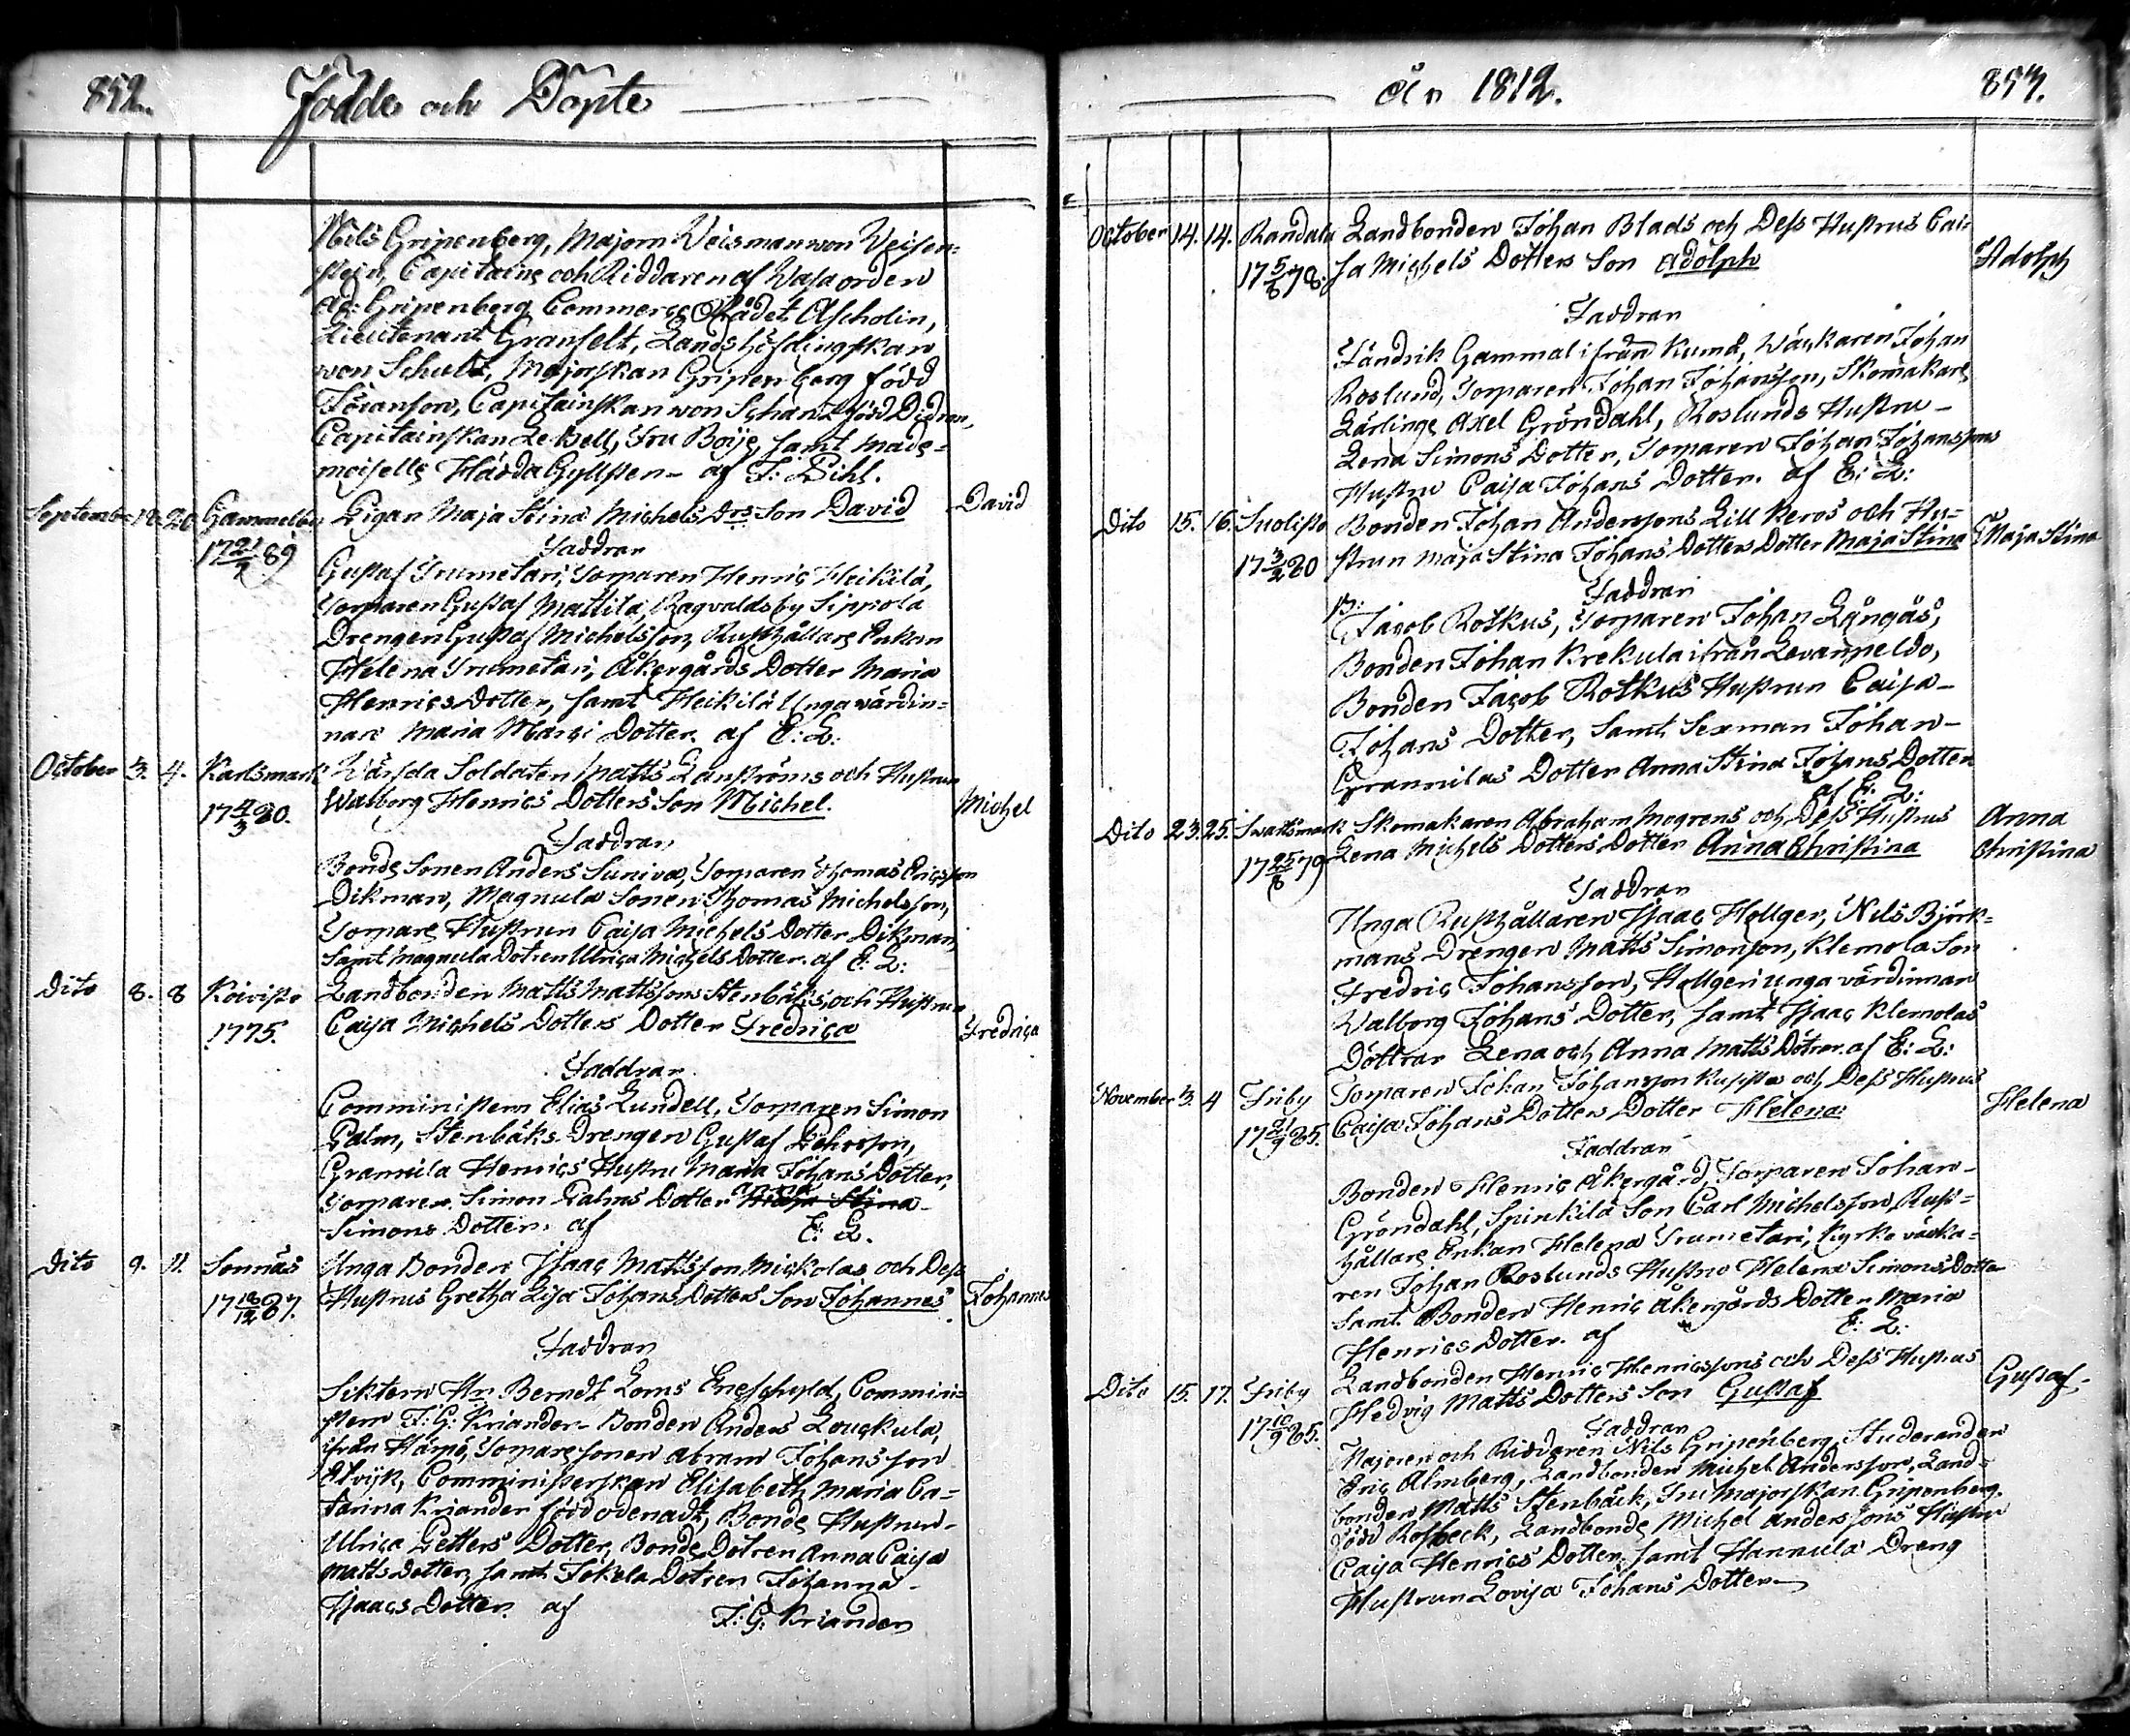 852.
Födde och Döpte
Nils Gripenberg, Majorn Weisman von Weisen-
stein, Capitaine och Riddaren af Wasaorden
Ad: Gripenberg Commerce Rådet Ascholin,
Lieutenant Granfelt, Landshöfdingskan
von Schultz, Majorskan Gripenberg född
Capitainskan von Schantz född
Capitainskan LeBell, Fru Boije, samt Made-
moiselle Hädda Gyllsten- af F: Pihl.
September 18. 20 Gammelby Pigan Maja Stina Michels Drs Son David David
17 21/7 89
Faddrar
Gustaf Trumetari, Torparen Henric Heikilä,
Torparen Gustaf Mattila, Ragvaldsby Sippola
Drengen Gustaf Michelsson, Rusthållare Enkan
Helena Trumetari, Åkergårds Dotter Maria
Henrics Dotter, samt Heikilä Unga värdin-
nan Maria Dotter. af E: L:
October 3. 4. Karlsmark Wärfda Soldaten Matts Lanströms och Hustrun
17 4/3 80. Walborg Henrics Dotters Son Michel. Michel
Faddrar
Bonde Sonen Anders Suniva, Torparen Thomas Ericsson
Dikman, Magnula Sonen Thomas Michelsson,
Torpare Hustrun Caisa Michels Dotter Dikman,
Samt Magnula Dotren Ulrica Michels Dotter. af E: L:
Dito 8. 8 Koivisto Landbonden Matts Mattssons Stenbäks, och Hustrun
1775. Caisa Michels Dotters Dotter Fredrica Fredrica
Faddrar
Comministern Elias Lundell, Torparen Simon
Palm, Stenbäks Drengen Gustaf
Grannila Henrics Hustru Maria Johans Dotter,
Torparen Simon Palms Dotter Maja Stina
Simons Dotter. af E: L.
Dito 9. 11. Sonnäs Unga Bonden Isaac Mattsson Mickolas och Dess
17 18/12 87. Hustrus Gretha Lisa Johans Dotters Son Johannes Johannes
Faddrar
Siktern Hr Berndt Loms Eneschyld, Commini-
stern F: G: Kriander- Bonden Anders Louckula,
ifrån Torpare sonen Abram Johansson
Elvijk, Comministerskan Elisabeth Maria Ca-
tarina Kriander född Odenadt, Bonde Hustrun-
Ulrica Petters Dotter, Bonde Dotren Anna Caisa
Matts Dotter, samt Jokela Dotren Johanna-
Isaacs Dotter. af F: G: Kriander
År 1812.
853.
October 14. 14. Randala Landbonden Johan Blads och Dess Hustrus Cai-
17 5/8 78. sa Michels Dotters Son Adolph Adolph
Faddrar
Fändrik Gammal ifrån Kumå, Wäckaren Johan
Roslund, Torparen Johan Johansson, Skomakare
Lärlinge Axel Gröndahl, Roslunds Hustru-
Lena Simons Dotter, Torparen Johan Johanssons
Hustru Caisa Johans Dotter. af E: L:
Dito 15. 16. Suolisto Bonden Johan Anderssons Lill Keros och Hu-
17 3/2 80 strun Maja Stina Johans Dotters Dotter Maja Stina Maja Stina
Faddrar
Jacob Rotkus, Torparen Johan Långås,
Bonden Johan Krekula ifrån Levanpeldo,
Bonden Jacob Rotkus Hustrun Caisa-
Johans Dotter, Samt Sexman Johan-
Grannilas Dotter Anna Stina Johans Dotter
af E: L:
Dito 23. 25. Svartsmark Skomakaren Abraham Mogrens och Dess Hustrus Anna
17 25/8 79 Lena Michels Dotters Dotter Anna Christina Christina
Faddrar
Unga Rusthållaren Isaac Hollger, Nils Björk-
mans Drengen Matts Simonsson, Klemola Son
Fredric Johansson, Hollgeri unga värdinnan
Walborg Johans Dotter, samt Isaac Klemolas
Döttrar Lena och Anna Matts Dötrar. af E: L:
November 3. 4 Friby Torparen Johan Johansson och Dess Hustrus
17 21/9 85. Caisa Johans Dotters Dotter Helena Helena
Faddrar
Bonden Henric Åkergård, Torparen Johan-
Gröndahl, Spinkilä Son Carl Michelsson, Rust-
hållare Enkan Helena Trumetari, Kyrko väcka-
ren Johan Roslunds Hustru Helena Simons Dotter
samt Bonden Henric Åkergårds Dotter Maria
Henrics Dotter. af E: L:
Dito 15. 17. Friby Landbonden Henric Henricssons och Dess Hustrus
17 10/9 85. Hedvig Matts Dotters Son Gustaf Gustaf
Faddrar
Majoren och Riddaren Nils Gripenberg, Studeranden
Eric Almberg, Landbonden Michel Andersson, Land-
bonden Matts Stenbäck, Fru Majorskan Gripenberg.
född Rosbeck, Landbonde Michel Anderssons Hustru
Caisa Henrics Dotter, samt Hannula Dreng
Hustrun Lovisa Johans Dotter-